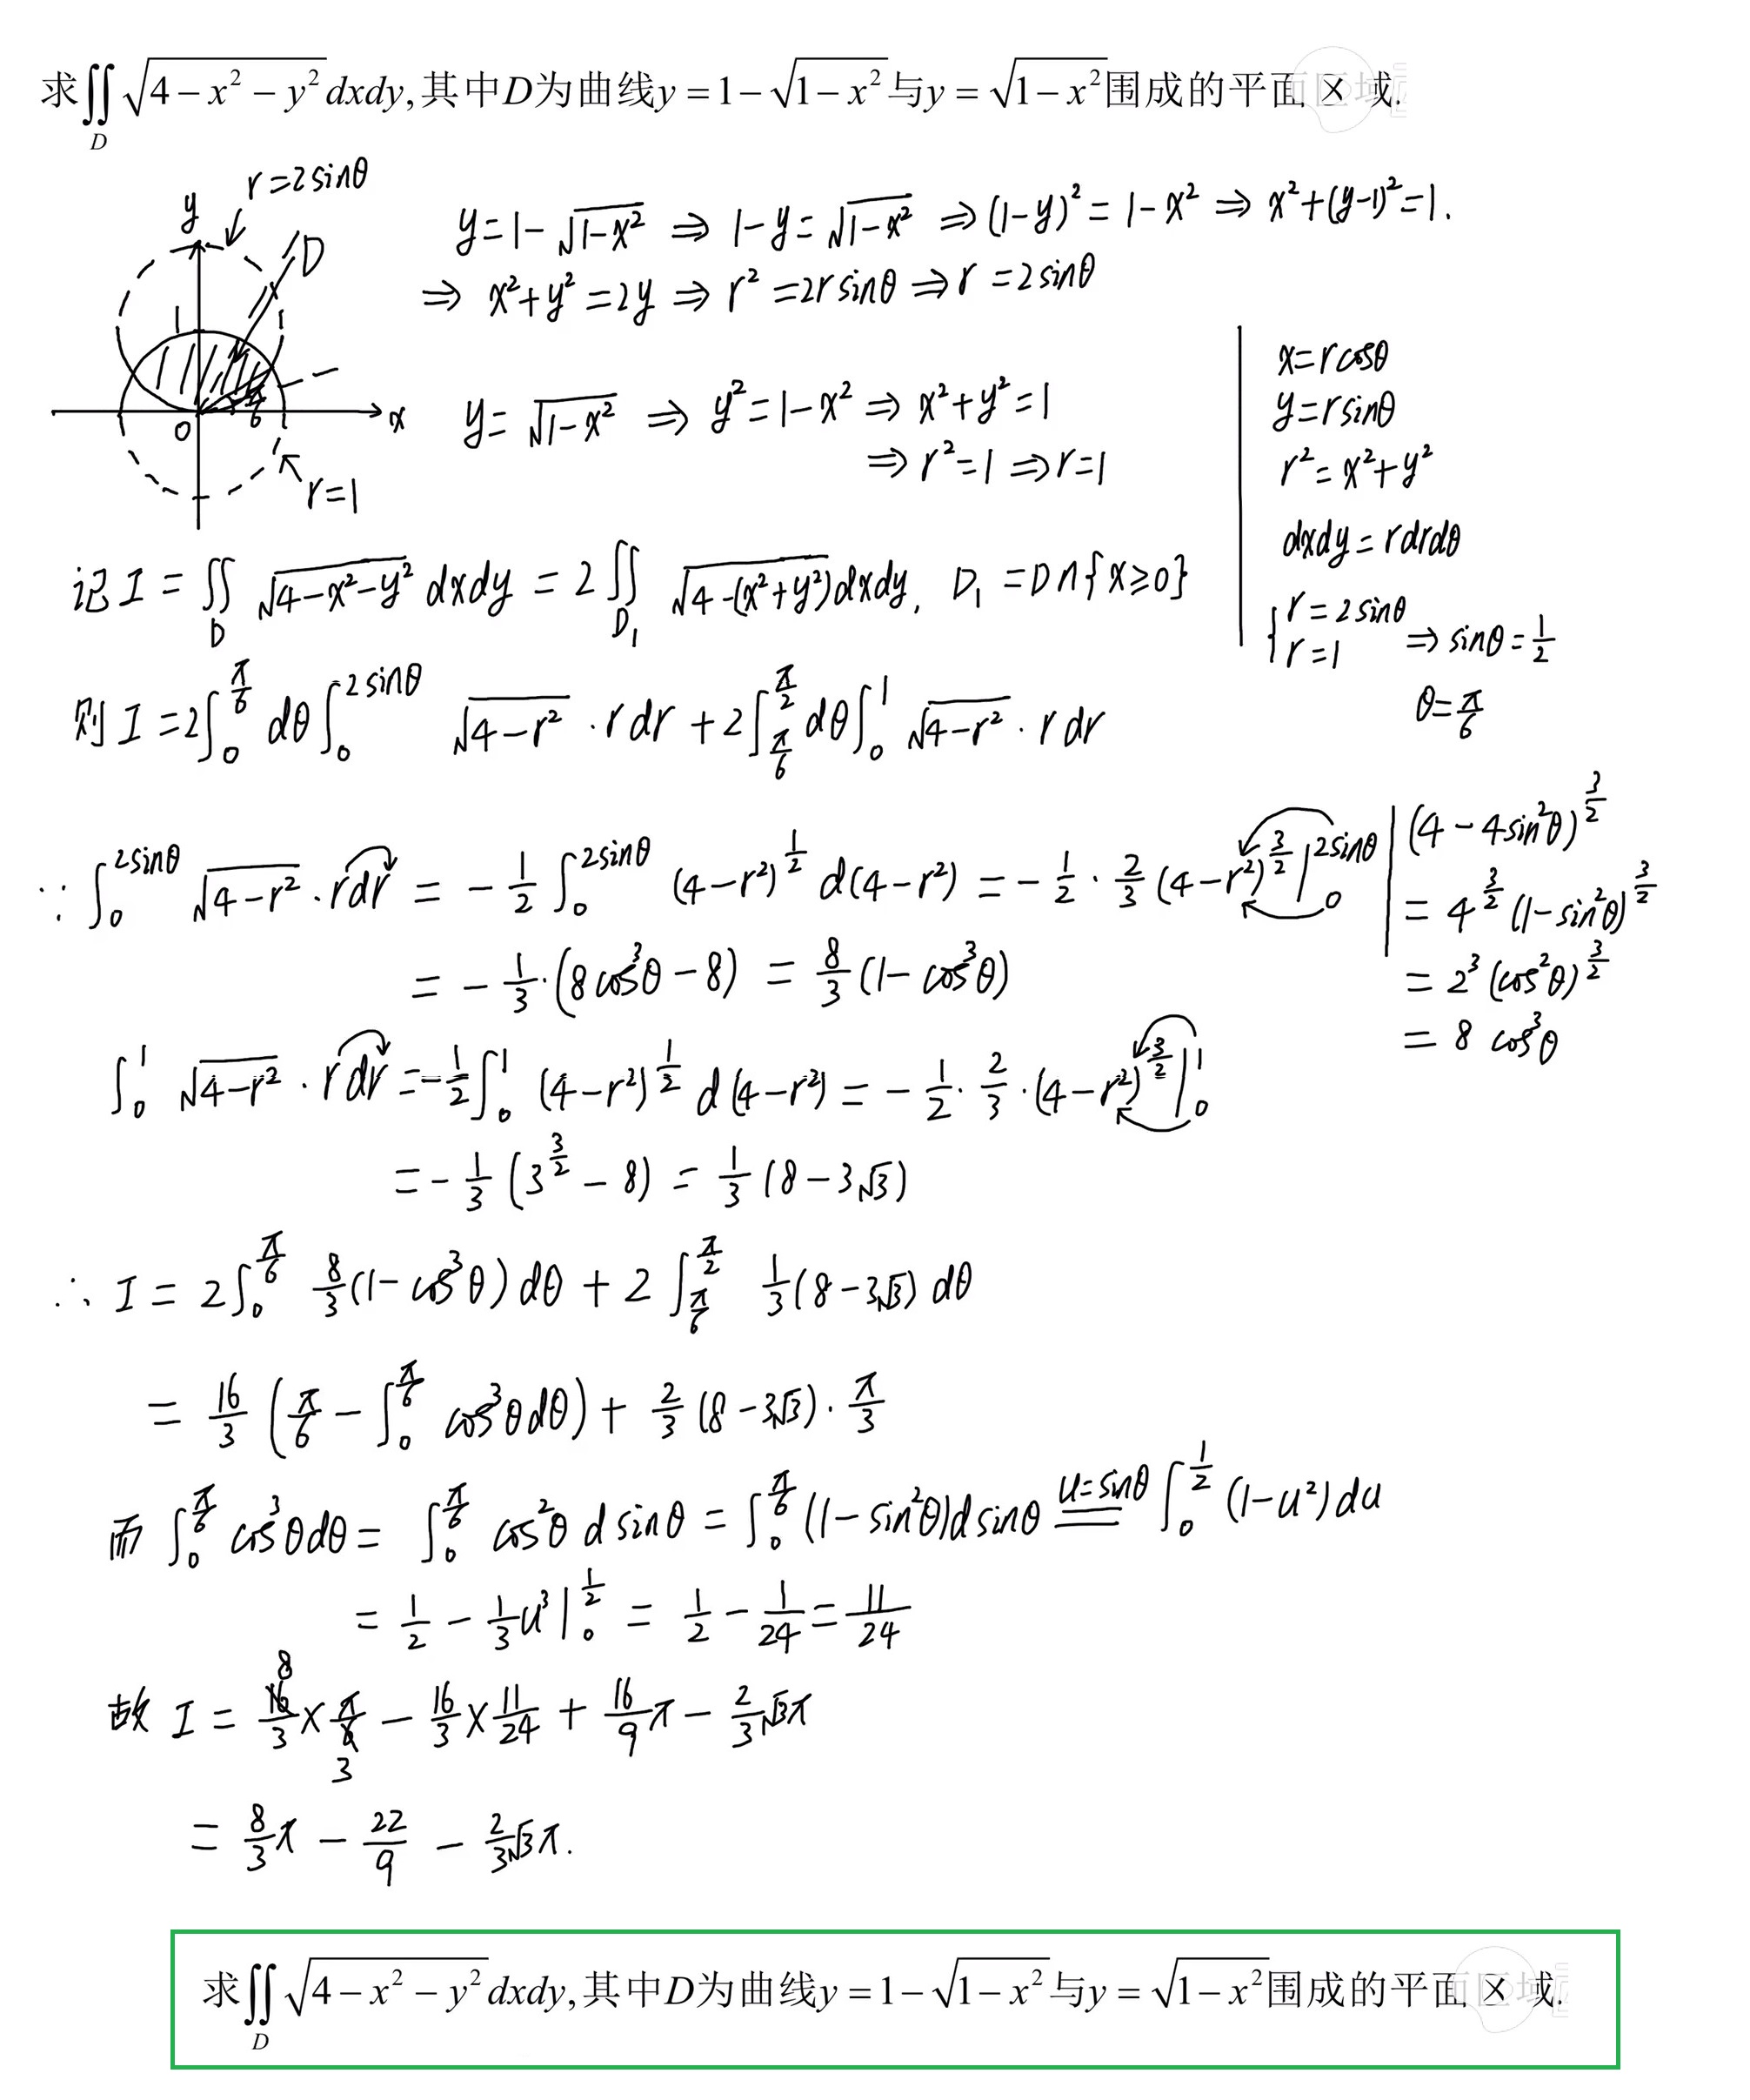 求∬_D √(4−x²−y²) dxdy,其中D为曲线y=1−√(1−x²)与y=√(1−x²)围成的平面区域.
r=2sinθ
y
D
1
π/6
0
x
r=1
y=1−√(1−x²) ⇒ 1−y=√(1−x²) ⇒ (1−y)²=1−x² ⇒ x²+(y−1)²=1.
⇒ x²+y²=2y ⇒ r²=2rsinθ ⇒ r=2sinθ
y=√(1−x²) ⇒ y²=1−x² ⇒ x²+y²=1
⇒ r²=1 ⇒ r=1
x=rcosθ
y=rsinθ
r²=x²+y²
dxdy=rdrdθ
{r=2sinθ
r=1 ⇒ sinθ=1/2
θ=π/6
记 I = ∬_D √(4−x²−y²) dxdy = 2∬_D₁ √(4−(x²+y²)) dxdy, D₁=D∩{x≥0}
则 I = 2∫_0^(π/6) dθ ∫_0^(2sinθ) √(4−r²)·rdr + 2∫_(π/6)^(π/2) dθ ∫_0^1 √(4−r²)·rdr
∵ ∫_0^(2sinθ) √(4−r²)·rdr = −1/2 ∫_0^(2sinθ) (4−r²)^(1/2) d(4−r²) = −1/2·2/3 (4−r²)^(3/2) |_0^(2sinθ)
= −1/3·(8cos³θ−8) = 8/3 (1−cos³θ)
(4−4sin²θ)^(3/2)
= 4^(3/2) (1−sin²θ)^(3/2)
= 2³ (cos²θ)^(3/2)
= 8 cos³θ
∫_0^1 √(4−r²)·rdr = −1/2 ∫_0^1 (4−r²)^(1/2) d(4−r²) = −1/2·2/3·(4−r²)^(3/2) |_0^1
= −1/3 (3^(3/2) − 8) = 1/3 (8−3√3)
∴ I = 2∫_0^(π/6) 8/3 (1−cos³θ) dθ + 2∫_(π/6)^(π/2) 1/3 (8−3√3) dθ
= 16/3 (π/6 − ∫_0^(π/6) cos³θdθ) + 2/3 (8−3√3)·π/3
而 ∫_0^(π/6) cos³θdθ = ∫_0^(π/6) cos²θ d sinθ = ∫_0^(π/6) (1−sin²θ) d sinθ u=sinθ = ∫_0^(1/2) (1−u²) du
= 1/2 − 1/3 u³ |_0^(1/2) = 1/2 − 1/24 = 11/24
8
故 I = 16/3 × π/6 − 16/3 × 11/24 + 16/9 π − 2/3 √3π
3
= 8/3 π − 22/9 − 2/3 √3π.
求∬_D √(4−x²−y²) dxdy,其中D为曲线y=1−√(1−x²)与y=√(1−x²)围成的平面区域.